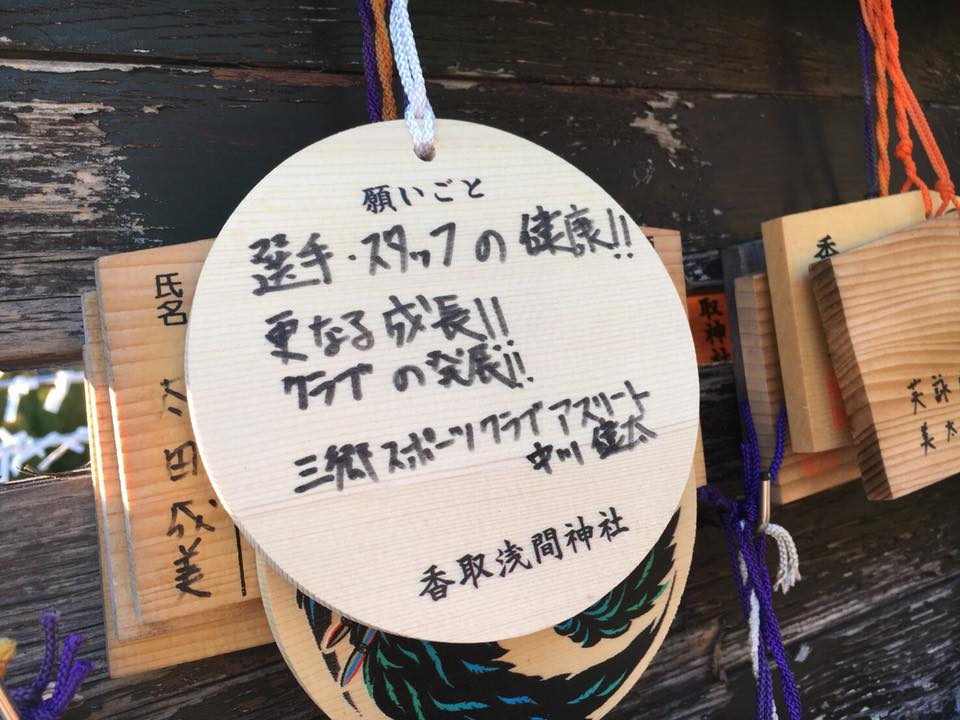 願いごと
選手・スタッフの健康!!
更なる成長!!
クラブの発展!!
三郷スポーツクラブアスリート
中川 健太
香取浅間神社
氏名
次田成美
取神社
香
英詠
美太